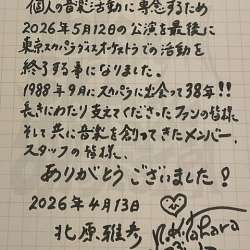 個人の音楽活動に専念するため
2026年5月12日の公演を最後に
東京スカパラダイスオーケストラでの活動を
終了する事になりました。
1988年9月にスカパラに出会って38年!!
長きにわたり支えてくださったファンの皆様、
そして共に音楽を創ってきたメンバー、
スタッフの皆様、
ありがとうございました!
2026年4月13日
北原雅彦